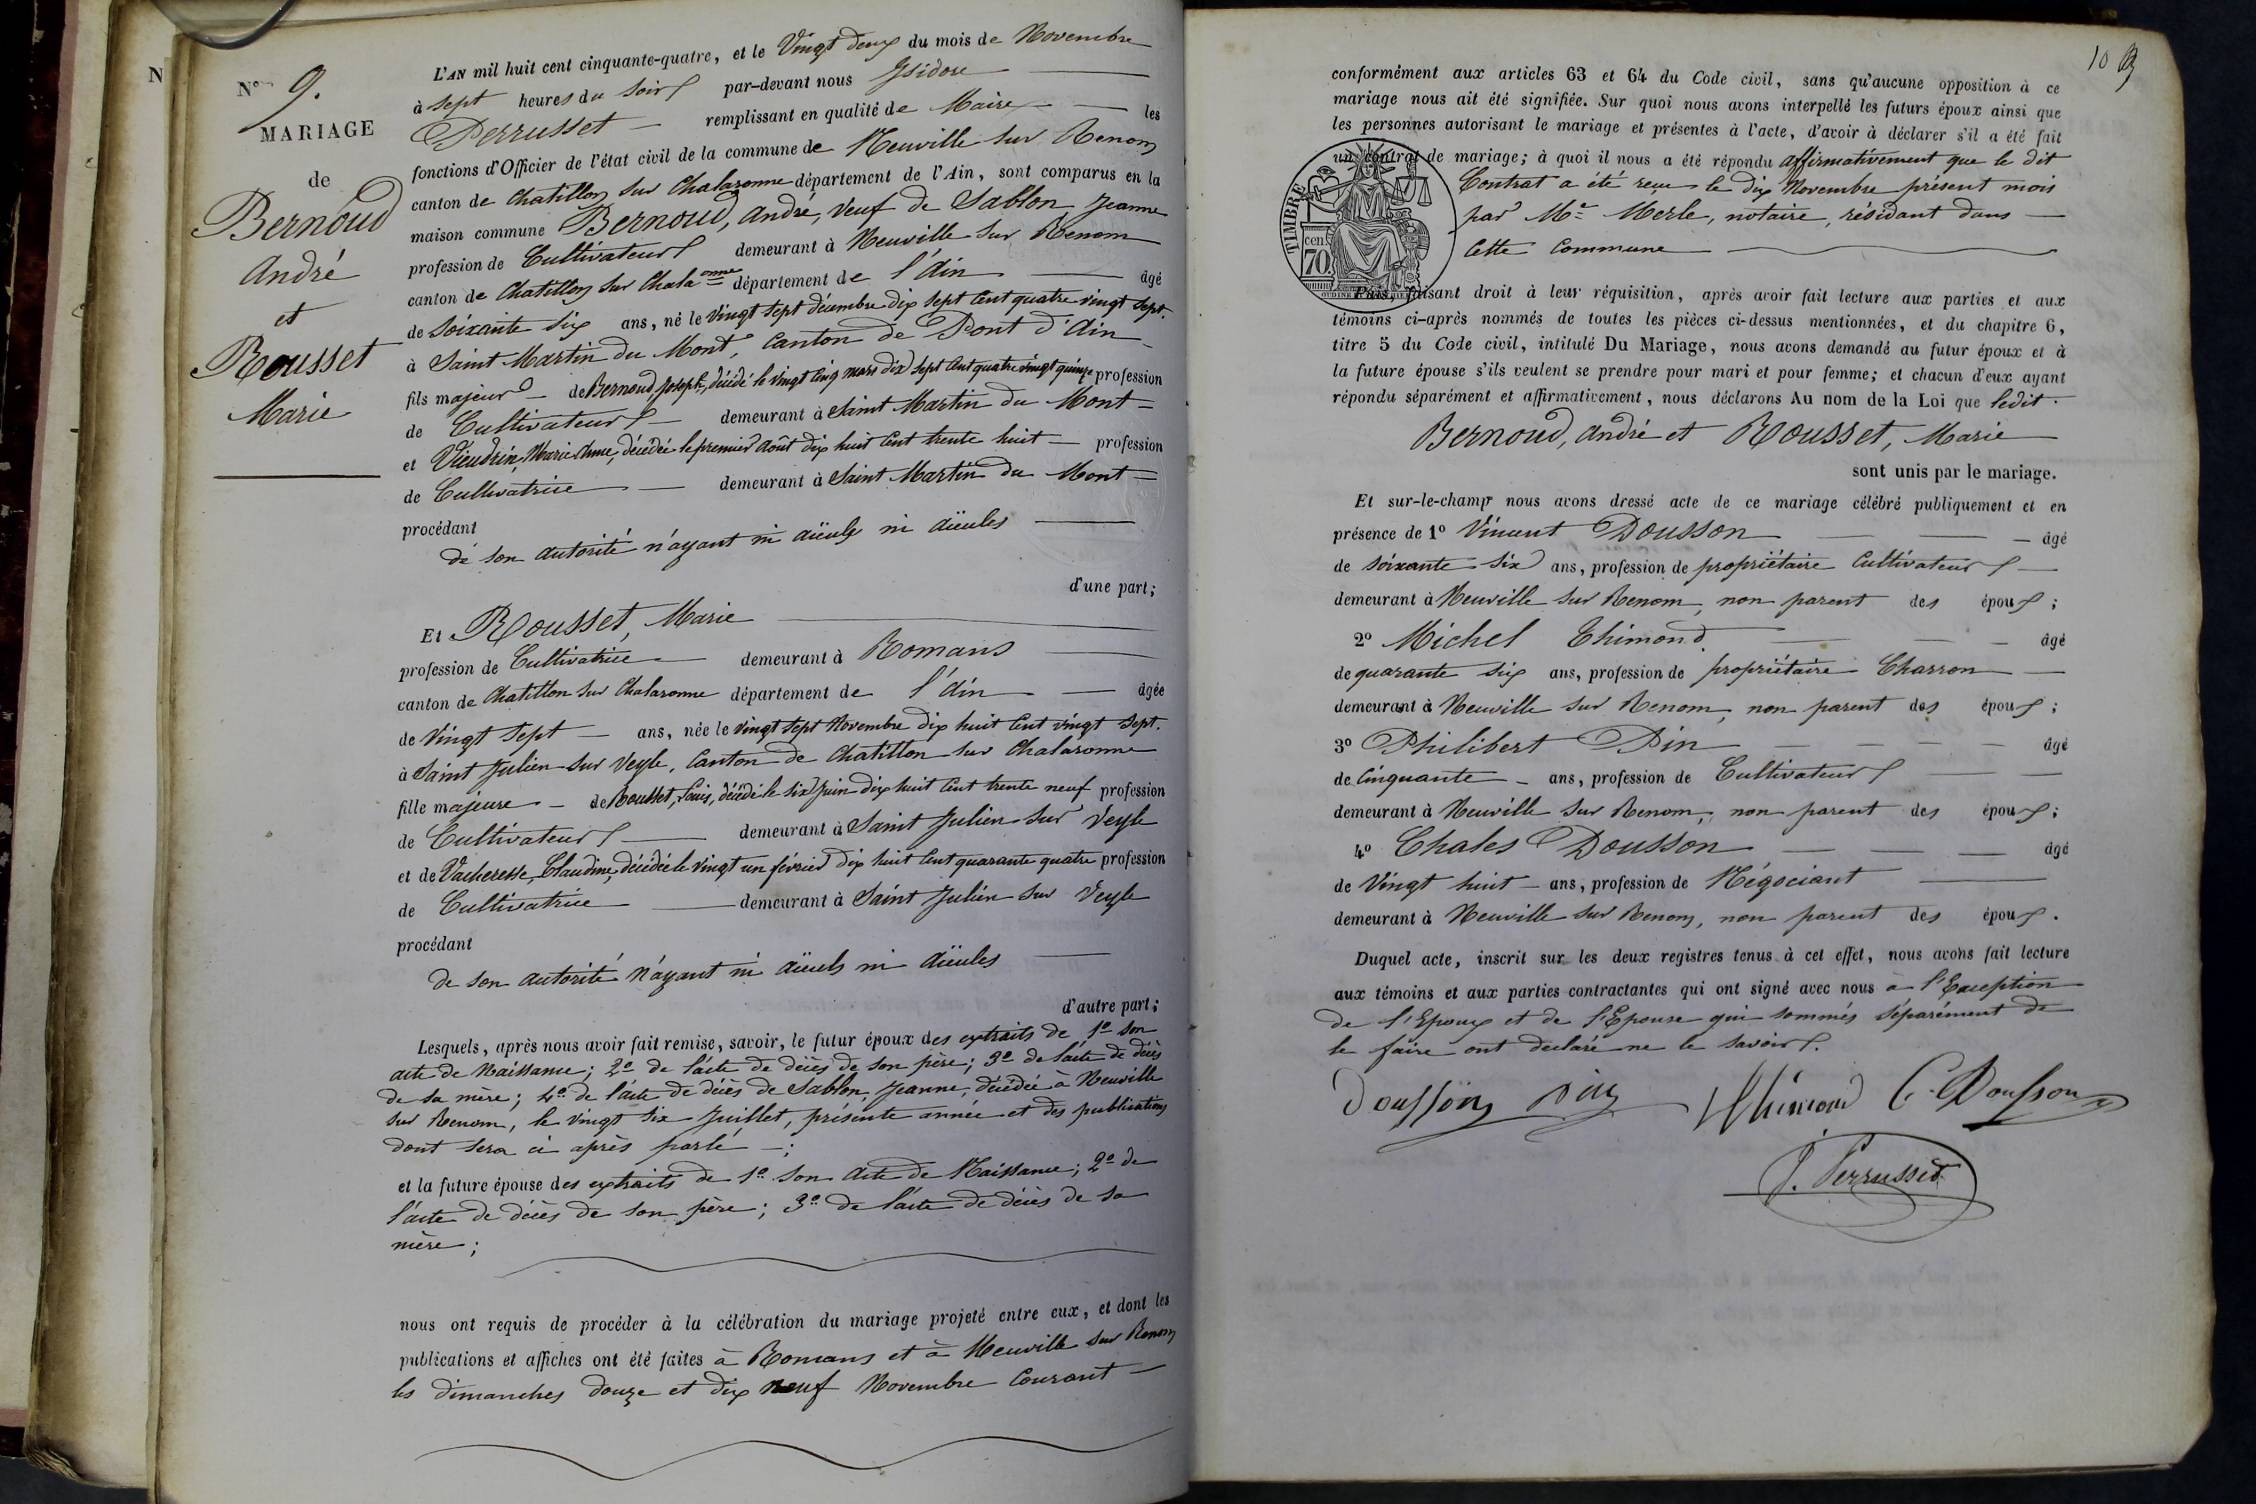 N
N° 9.
MARIAGE
de
Bernoud
André
et
Rousset
Marie
L'AN mil huit cent cinquante-quatre, et le Vingt deux du mois de Novembre
à sept heures du soir par-devant nous Isidore
Perrusset remplissant en qualité de Maire les
fonctions d'Officier de l'état civil de la commune de Neuville sur Renom
canton de Chatillon sur Chalaronne département de l'Ain, sont comparus en la
maison commune Bernoud, André, Veuf de Sablon Jeanne
profession de Cultivateur demeurant à Neuville sur Renom
canton de Chatillon sur Chalaronne département de l'Ain âgé
de soixante six ans, né le vingt sept décembre dix sept cent quatre vingt sept.
à Saint Martin du Mont, Canton de Pont d'Ain
fils majeur de Bernoud, Joseph, décédé le vingt cinq mars dix sept cent quatre vingt quinze profession
de Cultivateur demeurant à Saint Martin du Mont
et Vieudrin, Marie Anne, décédée le premier août dix huit cent trente huit profession
de Cultivatrice demeurant à Saint Martin du Mont
procédant
de son autorité n'ayant ni aïeuls ni aïeules
d'une part;
Et Rousset, Marie
profession de Cultivatrice demeurant à Romans
canton de Chatillon sur Chalaronne département de l'Ain âgée
de vingt sept ans, née le vingt sept Novembre dix huit cent vingt sept.
à Saint Julien sur Veyle, Canton de Chatillon sur Chalaronne
fille majeure de Rousset, Louis, décédé le six juin dix huit cent trente neuf profession
de Cultivateur demeurant à Saint Julien sur Veyle
et de Vacheresse, Claudine, décédée le vingt un février dix huit cent quarante quatre profession
de Cultivatrice demeurant à Saint Julien sur Veyle
procédant
de son autorité n'ayant ni aïeuls ni aïeules
d'autre part;
Lesquels, après nous avoir fait remise, savoir, le futur époux des extraits de 1° son
acte de Naissance; 2° de l'acte de décès de son père; 3° de l'acte de décès
de sa mère; 4° de l'acte de décès de Sablon, Jeanne, décédée à Neuville
sur Renom, le vingt six Juillet, présente année et des publications
dont sera ci après parlé;
et la future épouse des extraits de 1° son acte de Naissance; 2° de
l'acte de décès de son père; 3° de l'acte de décès de sa
mère;
nous ont requis de procéder à la célébration du mariage projeté entre eux, et dont les
publications et affiches ont été faites à Romans et à Neuville sur Renom
les dimanches douze et dix neuf Novembre Courant
10
conformément aux articles 63 et 64 du Code civil, sans qu'aucune opposition à ce
mariage nous ait été signifiée. Sur quoi nous avons interpellé les futurs époux ainsi que
les personnes autorisant le mariage et présentes à l'acte, d'avoir à déclarer s'il a été fait
un contrat de mariage; à quoi il nous a été répondu affirmativement que le dit
Contrat a été reçu le dix Novembre présent mois
par Me Merle, notaire, résidant dans
cette Commune
TIMBRE
cen.
70.
Puis, faisant droit à leur réquisition, après avoir fait lecture aux parties et aux
témoins ci-après nommés de toutes les pièces ci-dessus mentionnées, et du chapitre 6,
titre 5 du Code civil, intitulé Du Mariage, nous avons demandé au futur époux et à
la future épouse s'ils veulent se prendre pour mari et pour femme; et chacun d'eux ayant
répondu séparément et affirmativement, nous déclarons Au nom de la Loi que ledit
Bernoud, André et Rousset, Marie
sont unis par le mariage.
Et sur-le-champ nous avons dressé acte de ce mariage célébré publiquement et en
présence de 1° Vincent Dousson âgé
de soixante six ans, profession de propriétaire Cultivateur
demeurant à Neuville sur Renom, non parent des époux;
2° Michel Thimond. âgé
de quarante six ans, profession de propriétaire Charron
demeurant à Neuville sur Renom, non parent des époux;
3° Philibert Pin âgé
de Cinquante ans, profession de Cultivateur
demeurant à Neuville sur Renom, non parent des époux;
4° Chales Dousson âgé
de Vingt huit ans, profession de Négociant
demeurant à Neuville sur Renom, non parent des époux.
Duquel acte, inscrit sur les deux registres tenus à cet effet, nous avons fait lecture
aux témoins et aux parties contractantes qui ont signé avec nous à l'Exception
de l'Epoux et de l'Epouse qui sommés séparément de
le faire ont déclaré ne le savoir.
Dousson Pin Thimond C. Dousson
J. Perrusset